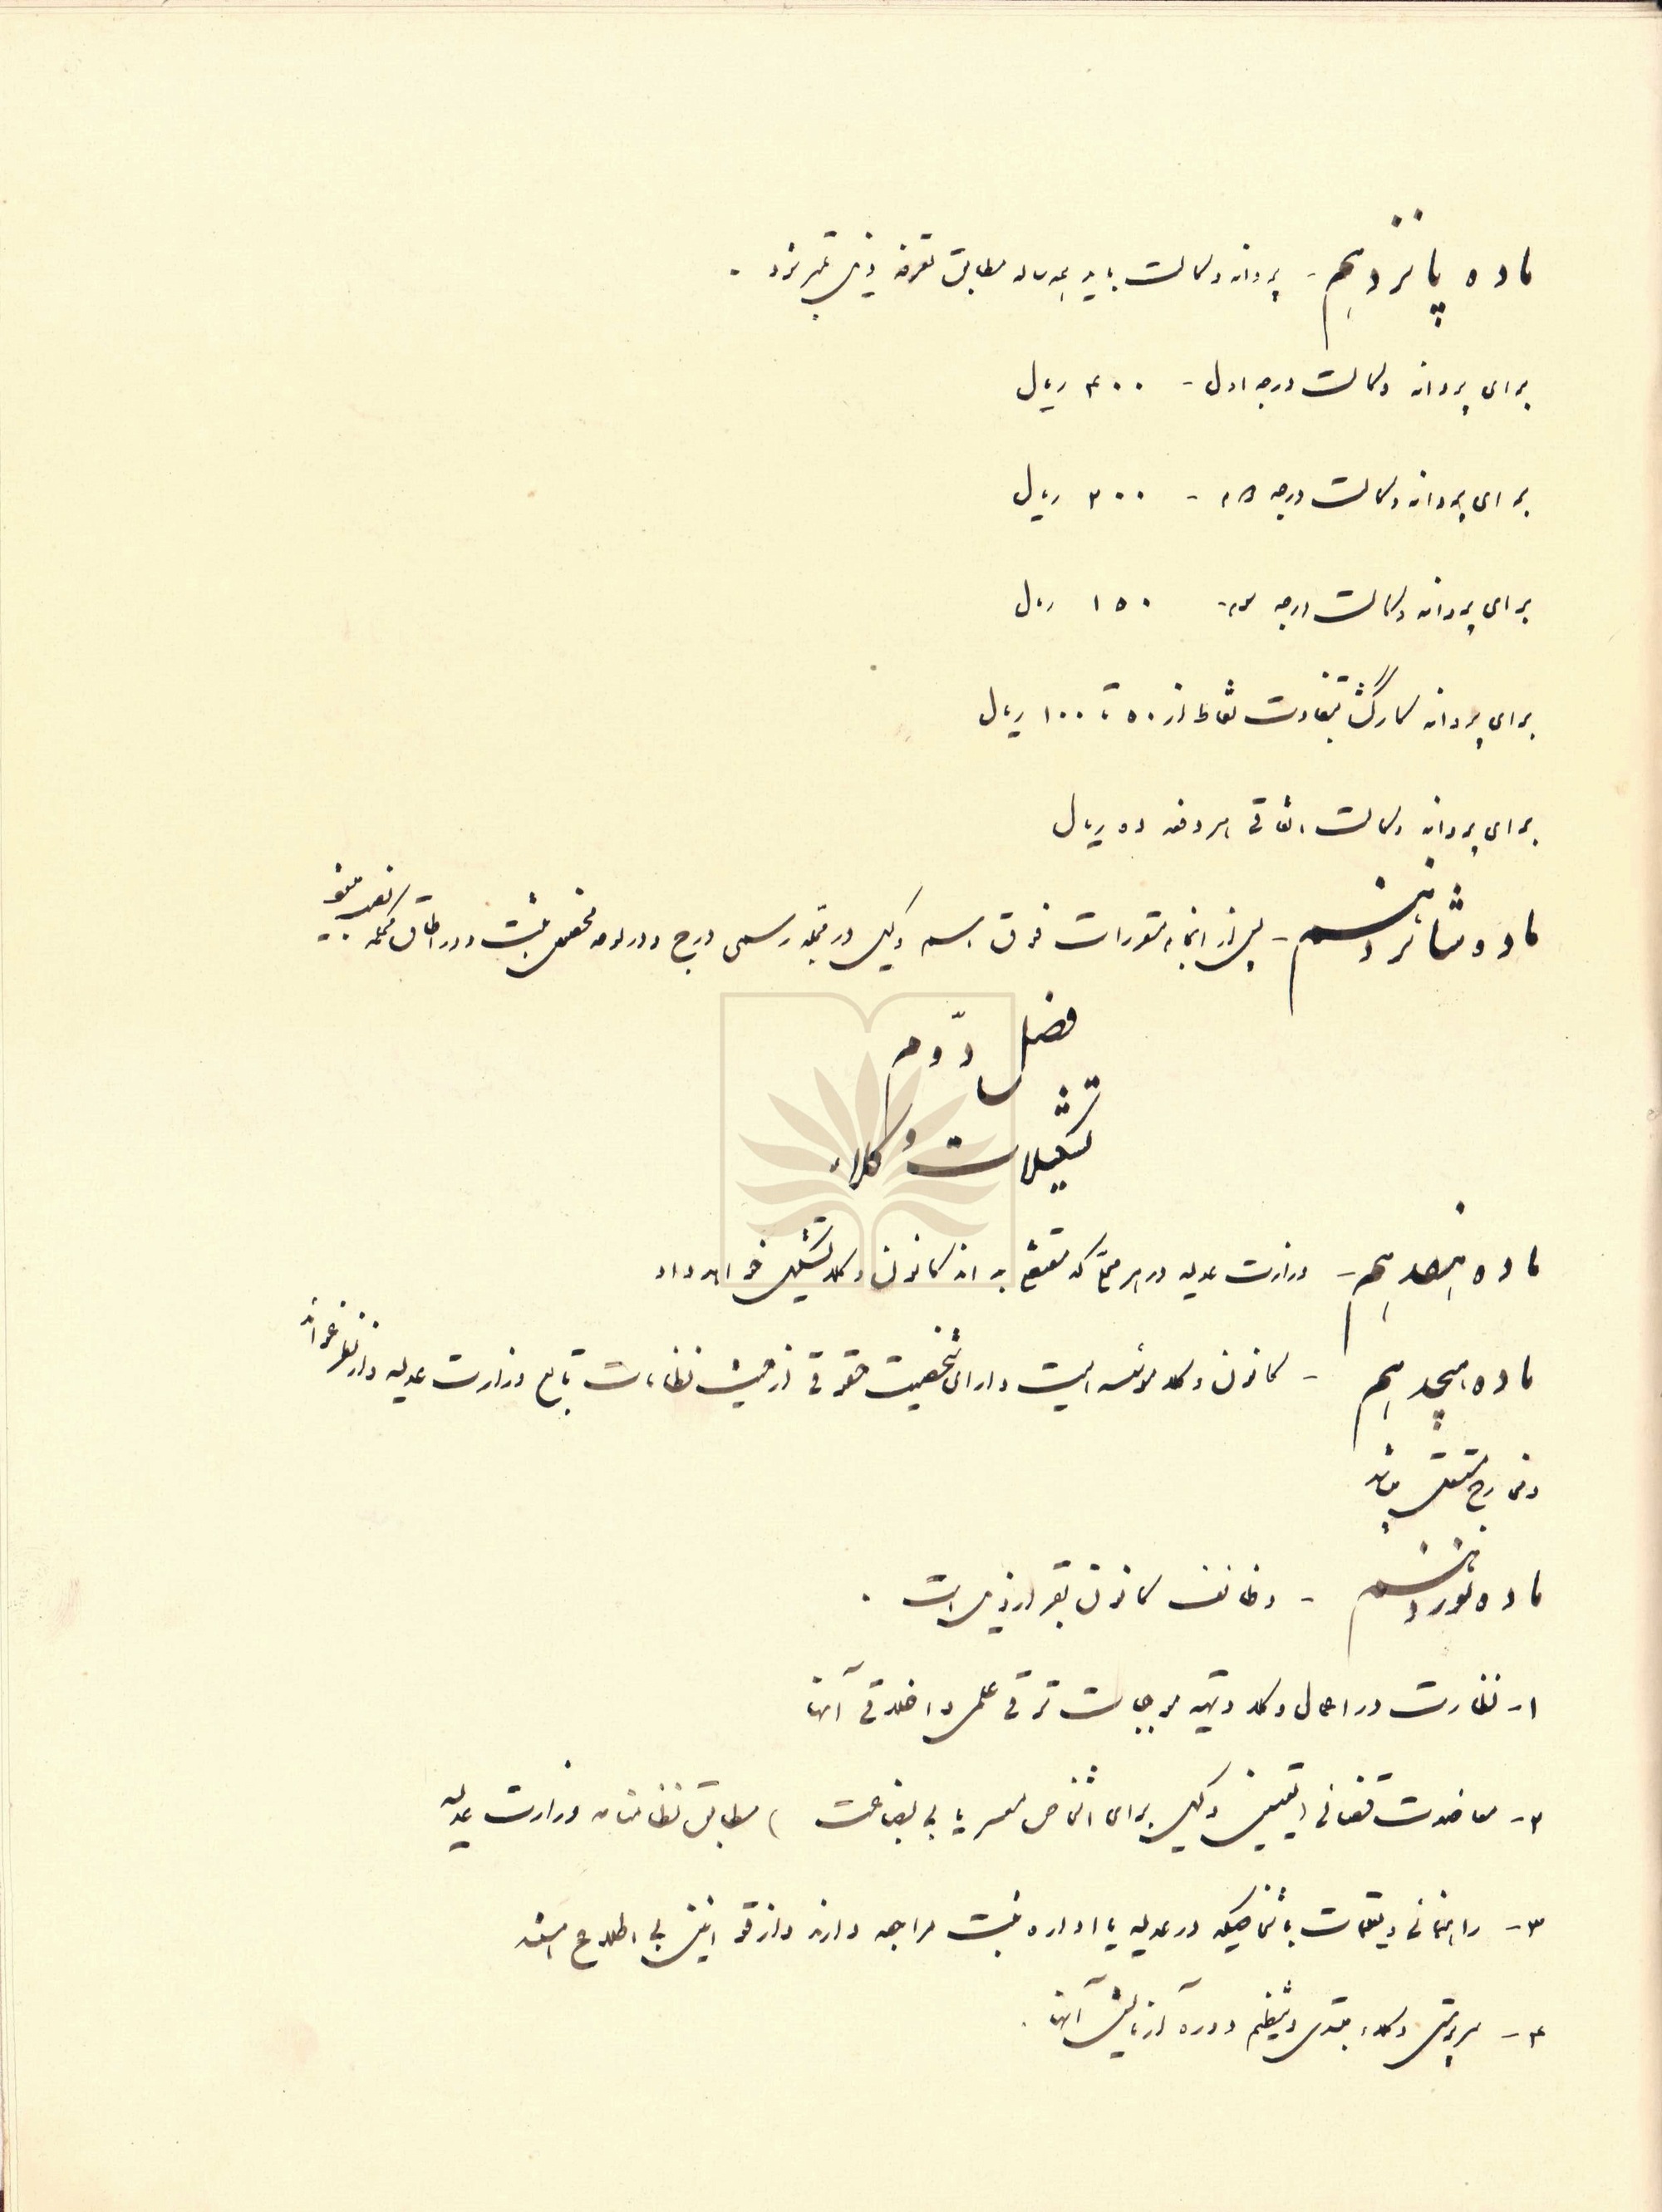 ماده پانزدهم - پروانه وکالت باید همه ساله مطابق تعرفه ذیل تمبر شود .
برای پروانه وکالت درجه اول - ۴۰۰ ریال
برای پروانه وکالت درجه دوم - ۳۰۰ ریال
برای پروانه وکالت درجه سوم - ۱۵۰ ریال
برای پروانه کارگشائی بتفاوت نقاط از ۵۰ تا ۱۰۰ ریال
برای پروانه وکالت اتفاقی هر دفعه ده ریال
ماده شانزدهم - پس از انجام مقررات فوق اسم وکیل در مجله رسمی درج و در لوحه مخصوص ثبت و در اطاق محکمه نصب میشود
فصل دوّم
تشکیلات وکلاء
ماده هفدهم - وزارت عدلیه در هر محلی که مقتضی بداند کانون وکلا تشکیل خواهد داد
ماده هیجدهم - کانون وکلا موسسه ایست دارای شخصیت حقوقی از حیث نظامات تابع وزارت عدلیه و از نظر عوائد
و مخارج مستقل میباشد
ماده نوزدهم - وظائف کانون بقرار ذیل است .
۱ - نظارت در اعمال وکلا و تهیه موجبات ترقی علمی و اخلاقی آنها
۲ - معاضدت قضائی (تعیین وکیل برای اشخاص معسر یا بی بضاعت ) مطابق نظامنامه وزارت عدلیه
۳ - راهنمائی و تعلیمات باشخاصیکه در عدلیه یا اداره ثبت مراجعه دارند و از قوانین بی اطلاع هستند
۴ - سرپرستی وکلاء مبتدی و تنظیم دوره آزمایش آنها .